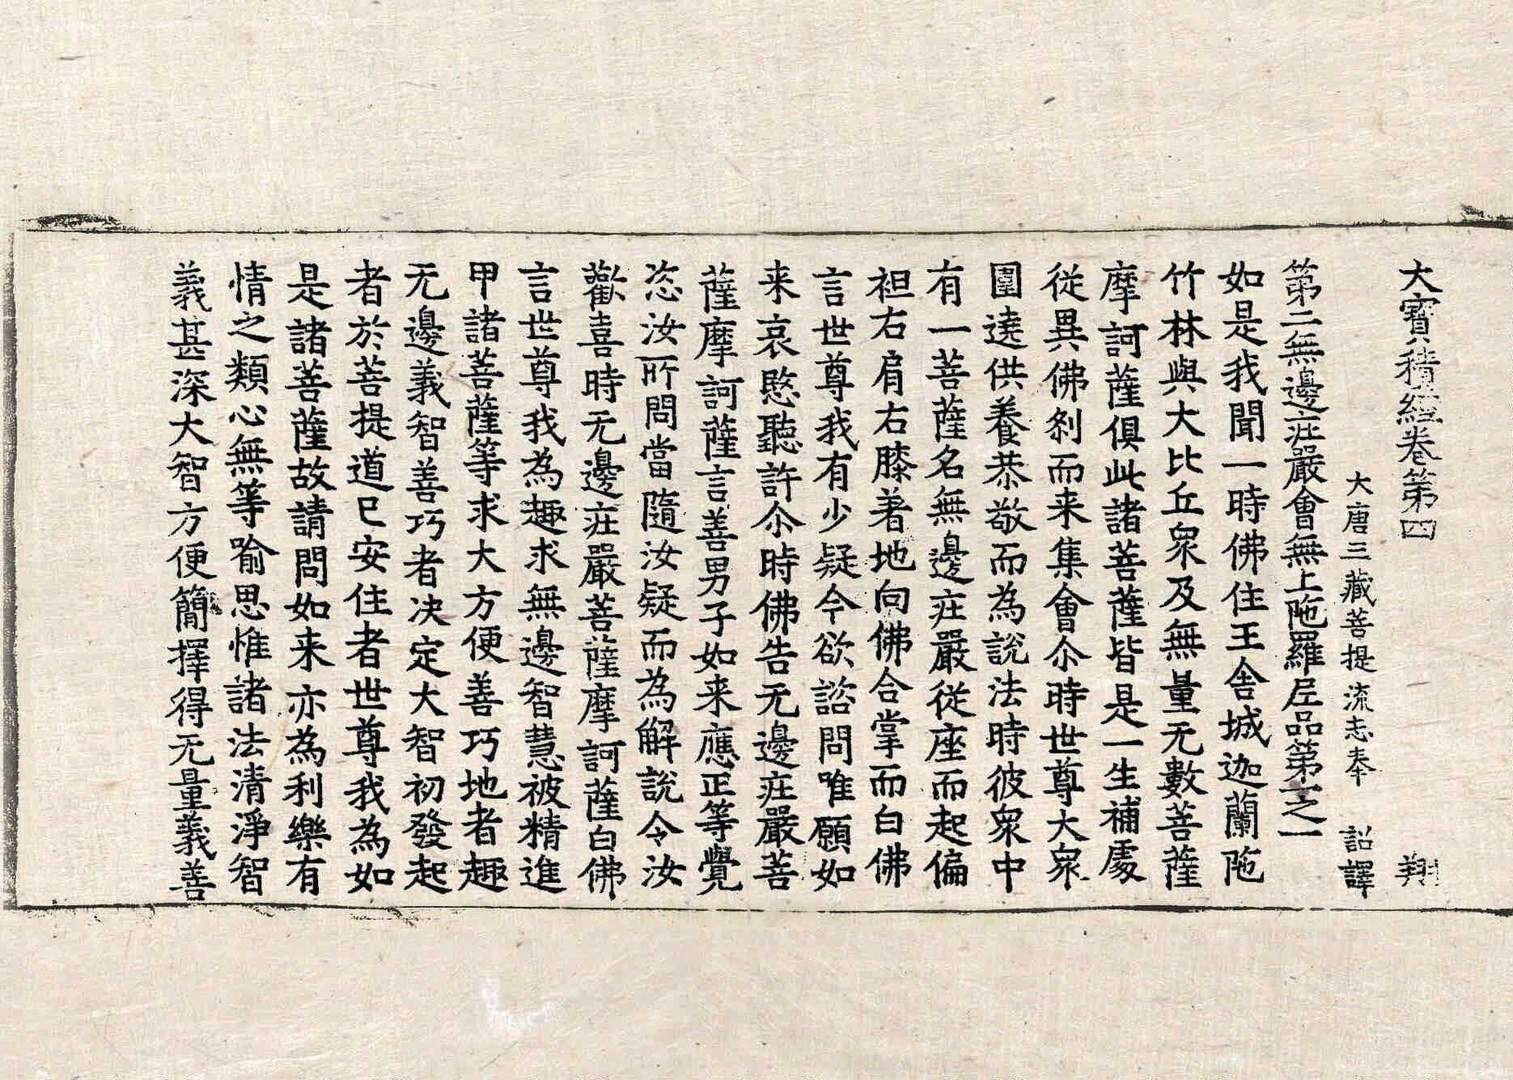 大寶積經卷第四 翔
大唐三藏菩提流志奉 詔譯
第二無邊疘嚴會無上陁羅尼品第一之一
如是我聞一時佛住王舍城迦蘭陁
竹林與大比丘衆及無量无數菩薩
摩訶薩俱此諸菩薩皆是一生補處
從異佛刹而来集會尒時世尊大衆
圍遶供養恭敬而為說法時彼衆中
有一菩薩名無邊疘嚴從座而起偏
袒右肩右膝著地向佛合掌而白佛
言世尊我有少疑今欲諮問唯願如
来哀愍聽許尒時佛告无邊疘嚴菩
薩摩訶薩言善男子如来應正等覺
恣汝所問當隨汝疑而為解說令汝
歡喜時无邊疘嚴菩薩摩訶薩白佛
言世尊我為趣求無邊智慧被精進
甲諸菩薩等求大方便善巧地者趣
无邊義智善巧者决定大智初發起
者於菩提道已安住者世尊我為如
是諸菩薩故請問如来亦為利樂有
情之類心無等喻思惟諸法清淨智
義甚深大智方便簡擇得无量義善